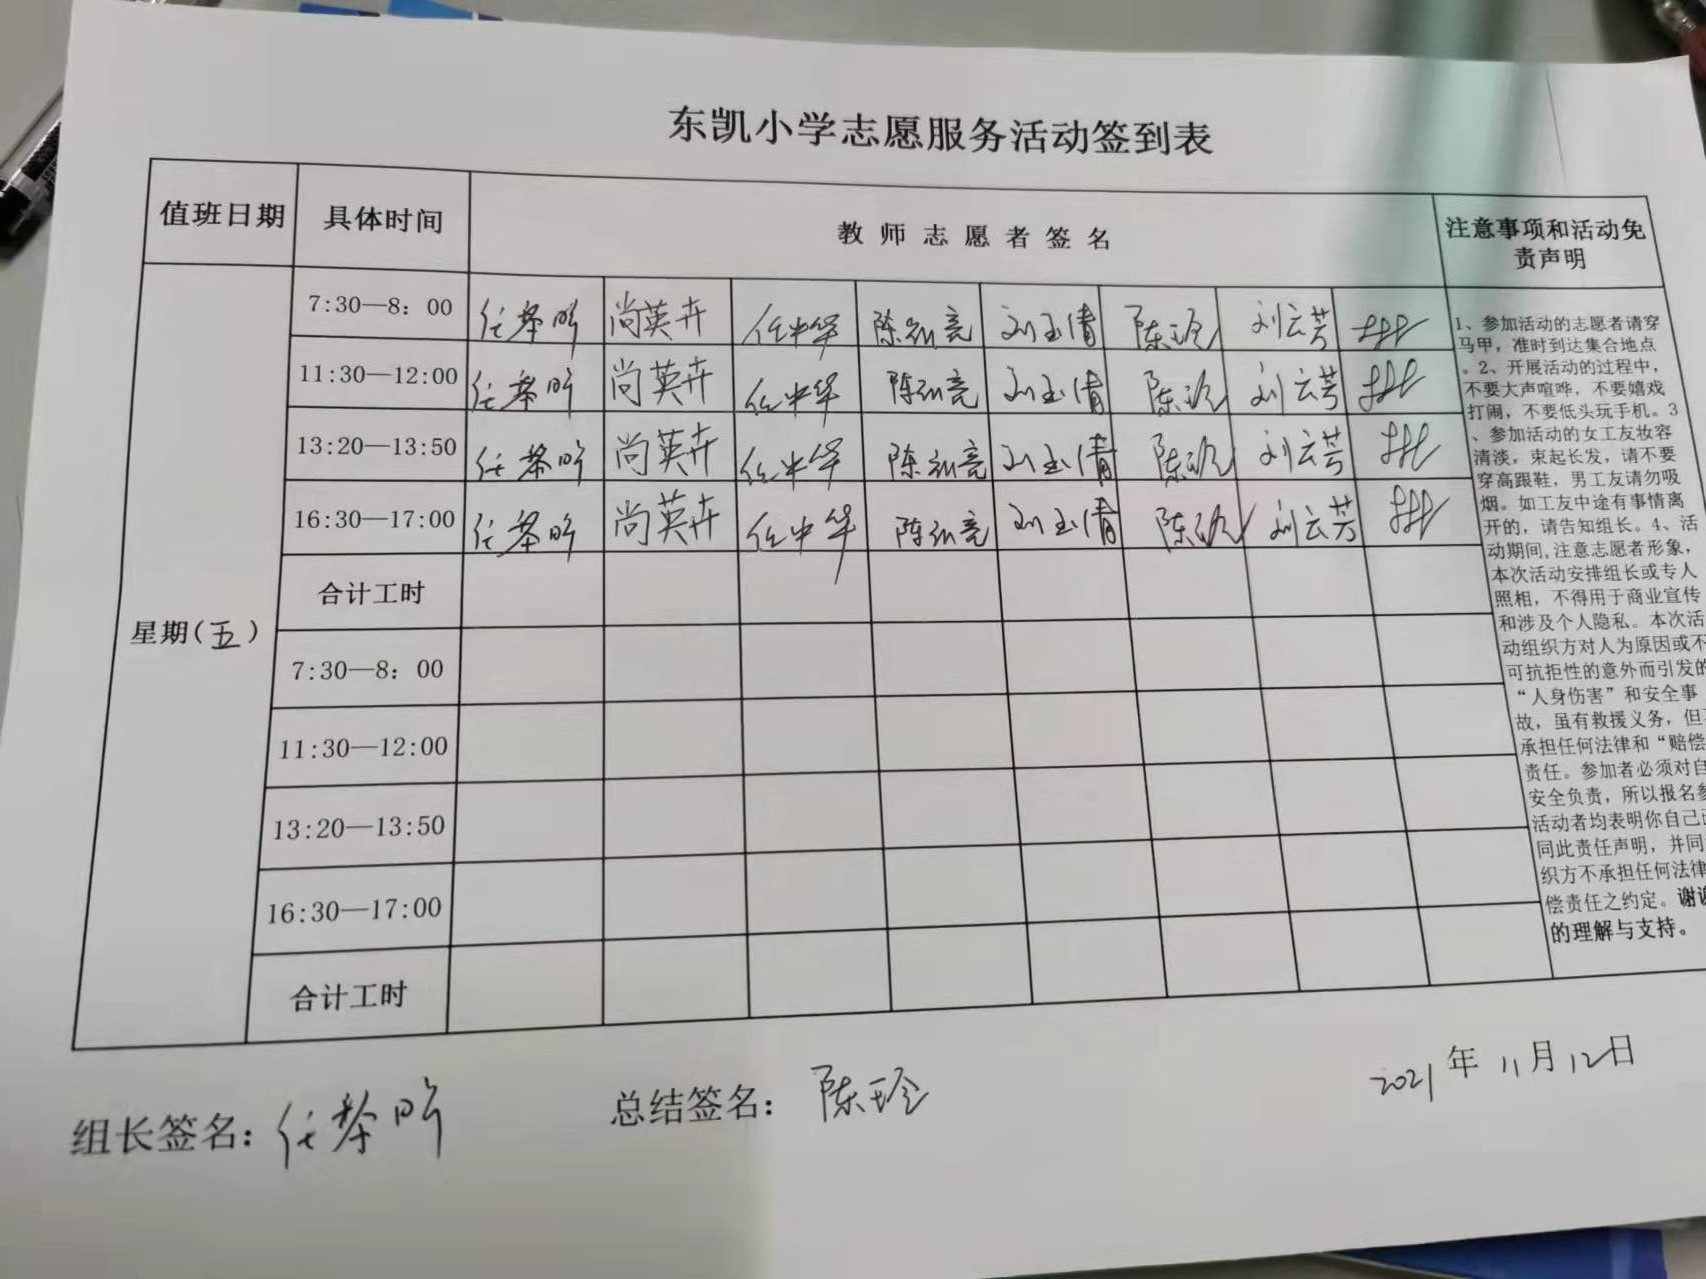 东凯小学志愿服务活动签到表
值班日期 具体时间 教师志愿者签名 注意事项和活动免责声明
星期(五)
7:30—8：00 尚英卉 任中华 陈 亮 刘玉清 陈玲 刘云芳
11:30—12:00 尚英卉 任中华 陈 亮 刘玉清 陈玲 刘云芳
13:20—13:50 尚英卉 任中华 陈 亮 刘玉清 陈玲 刘云芳
16:30—17:00 尚英卉 任中华 陈 亮 刘玉清 陈玲 刘云芳
合计工时
7:30—8：00
11:30—12:00
13:20—13:50
16:30—17:00
合计工时
1、参加活动的志愿者请穿
马甲，准时到达集合地点
。2、开展活动的过程中，
不要大声喧哗，不要嬉戏
打闹，不要低头玩手机。3
、参加活动的女工友妆容
清淡，束起长发，请不要
穿高跟鞋，男工友请勿吸
烟。如工友中途有事情离
开的，请告知组长。4、活
动期间,注意志愿者形象，
本次活动安排组长或专人
照相，不得用于商业宣传
和涉及个人隐私。本次活
动组织方对人为原因或不
可抗拒性的意外而引发的
“人身伤害”和安全事
故，虽有救援义务，但
承担任何法律和“赔偿
责任。参加者必须对自
安全负责，所以报名参
活动者均表明你自己
同此责任声明，并同
织方不承担任何法律
偿责任之约定。谢谢
的理解与支持。
组长签名：任
总结签名：陈玲
2021年11月12日